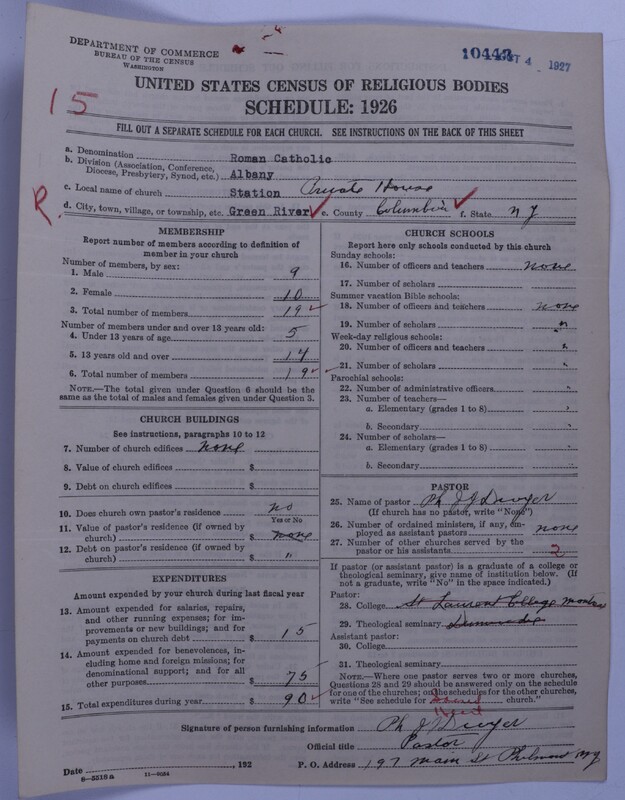 DEPARTMENT OF COMMERCE
BUREAU OF THE CENSUS
WASHINGTON
10443
OCT 4 1927
15
UNITED STATES CENSUS OF RELIGIOUS BODIES
SCHEDULE: 1926
FILL OUT A SEPARATE SCHEDULE FOR EACH CHURCH. SEE INSTRUCTIONS ON THE BACK OF THIS SHEET
a. Denomination Roman Catholic
b. Division (Association, Conference, Diocese, Presbytery, Synod, etc.) Albany
c. Local name of church Station Private House
R.
d. City, town, village, or township, etc. Green River e. County Columbia f. State N Y
MEMBERSHIP
Report number of members according to definition of
member in your church
Number of members, by sex:
1. Male 9
2. Female 10
3. Total number of members 19
Number of members under and over 13 years old:
4. Under 13 years of age 5
5. 13 years old and over 14
6. Total number of members 19
NOTE.—The total given under Question 6 should be
same as the total of males and females given under Question 3.
CHURCH BUILDINGS
See instructions, paragraphs 10 to 12
7. Number of church edifices none
8. Value of church edifices $
9. Debt on church edifices $
10. Does church own pastor's residence? no
Yes or No
11. Value of pastor's residence (if owned by
church) $ none
12. Debt on pastor's residence (if owned by
church) $ "
EXPENDITURES
Amount expended by your church during last fiscal year
13. Amount expended for salaries, repairs,
and other running expenses; for im-
provements or new buildings; and for
payments on church debt $ 15
14. Amount expended for benevolences, in-
cluding home and foreign missions; for
denominational support; and for all
other purposes $ 75
15. Total expenditures during year $ 90
CHURCH SCHOOLS
Report here only schools conducted by this church
Sunday schools:
16. Number of officers and teachers none
17. Number of scholars
Summer vacation Bible schools:
18. Number of officers and teachers none
19. Number of scholars "
Week-day religious schools:
20. Number of officers and teachers "
21. Number of scholars "
Parochial schools:
22. Number of administrative officers "
23. Number of teachers—
a. Elementary (grades 1 to 8) "
b. Secondary "
24. Number of scholars—
a. Elementary (grades 1 to 8) "
b. Secondary "
PASTOR
25. Name of pastor Ph J Dwyer
(If church has no pastor, write "None")
26. Number of ordained ministers, if any, em-
ployed as assistant pastors none
27. Number of other churches served by the
pastor or his assistants 2
If pastor (or assistant pastor) is a graduate of a college or
theological seminary, give name of institution below. (If
not a graduate, write "No" in the space indicated.)
Pastor:
28. College St Laurent College
29. Theological seminary
Assistant pastor:
30. College
31. Theological seminary
NOTE.—Where one pastor serves two or more churches,
Questions 28 and 29 should be answered only on the schedule
for one of the churches; on the schedules for the other churches,
write "See schedule for Sacred Heart church."
Signature of person furnishing information Ph J Dwyer
Official title Pastor
Date , 192 P. O. Address 197 Main St Philmont NY
6—5518a 11—4034